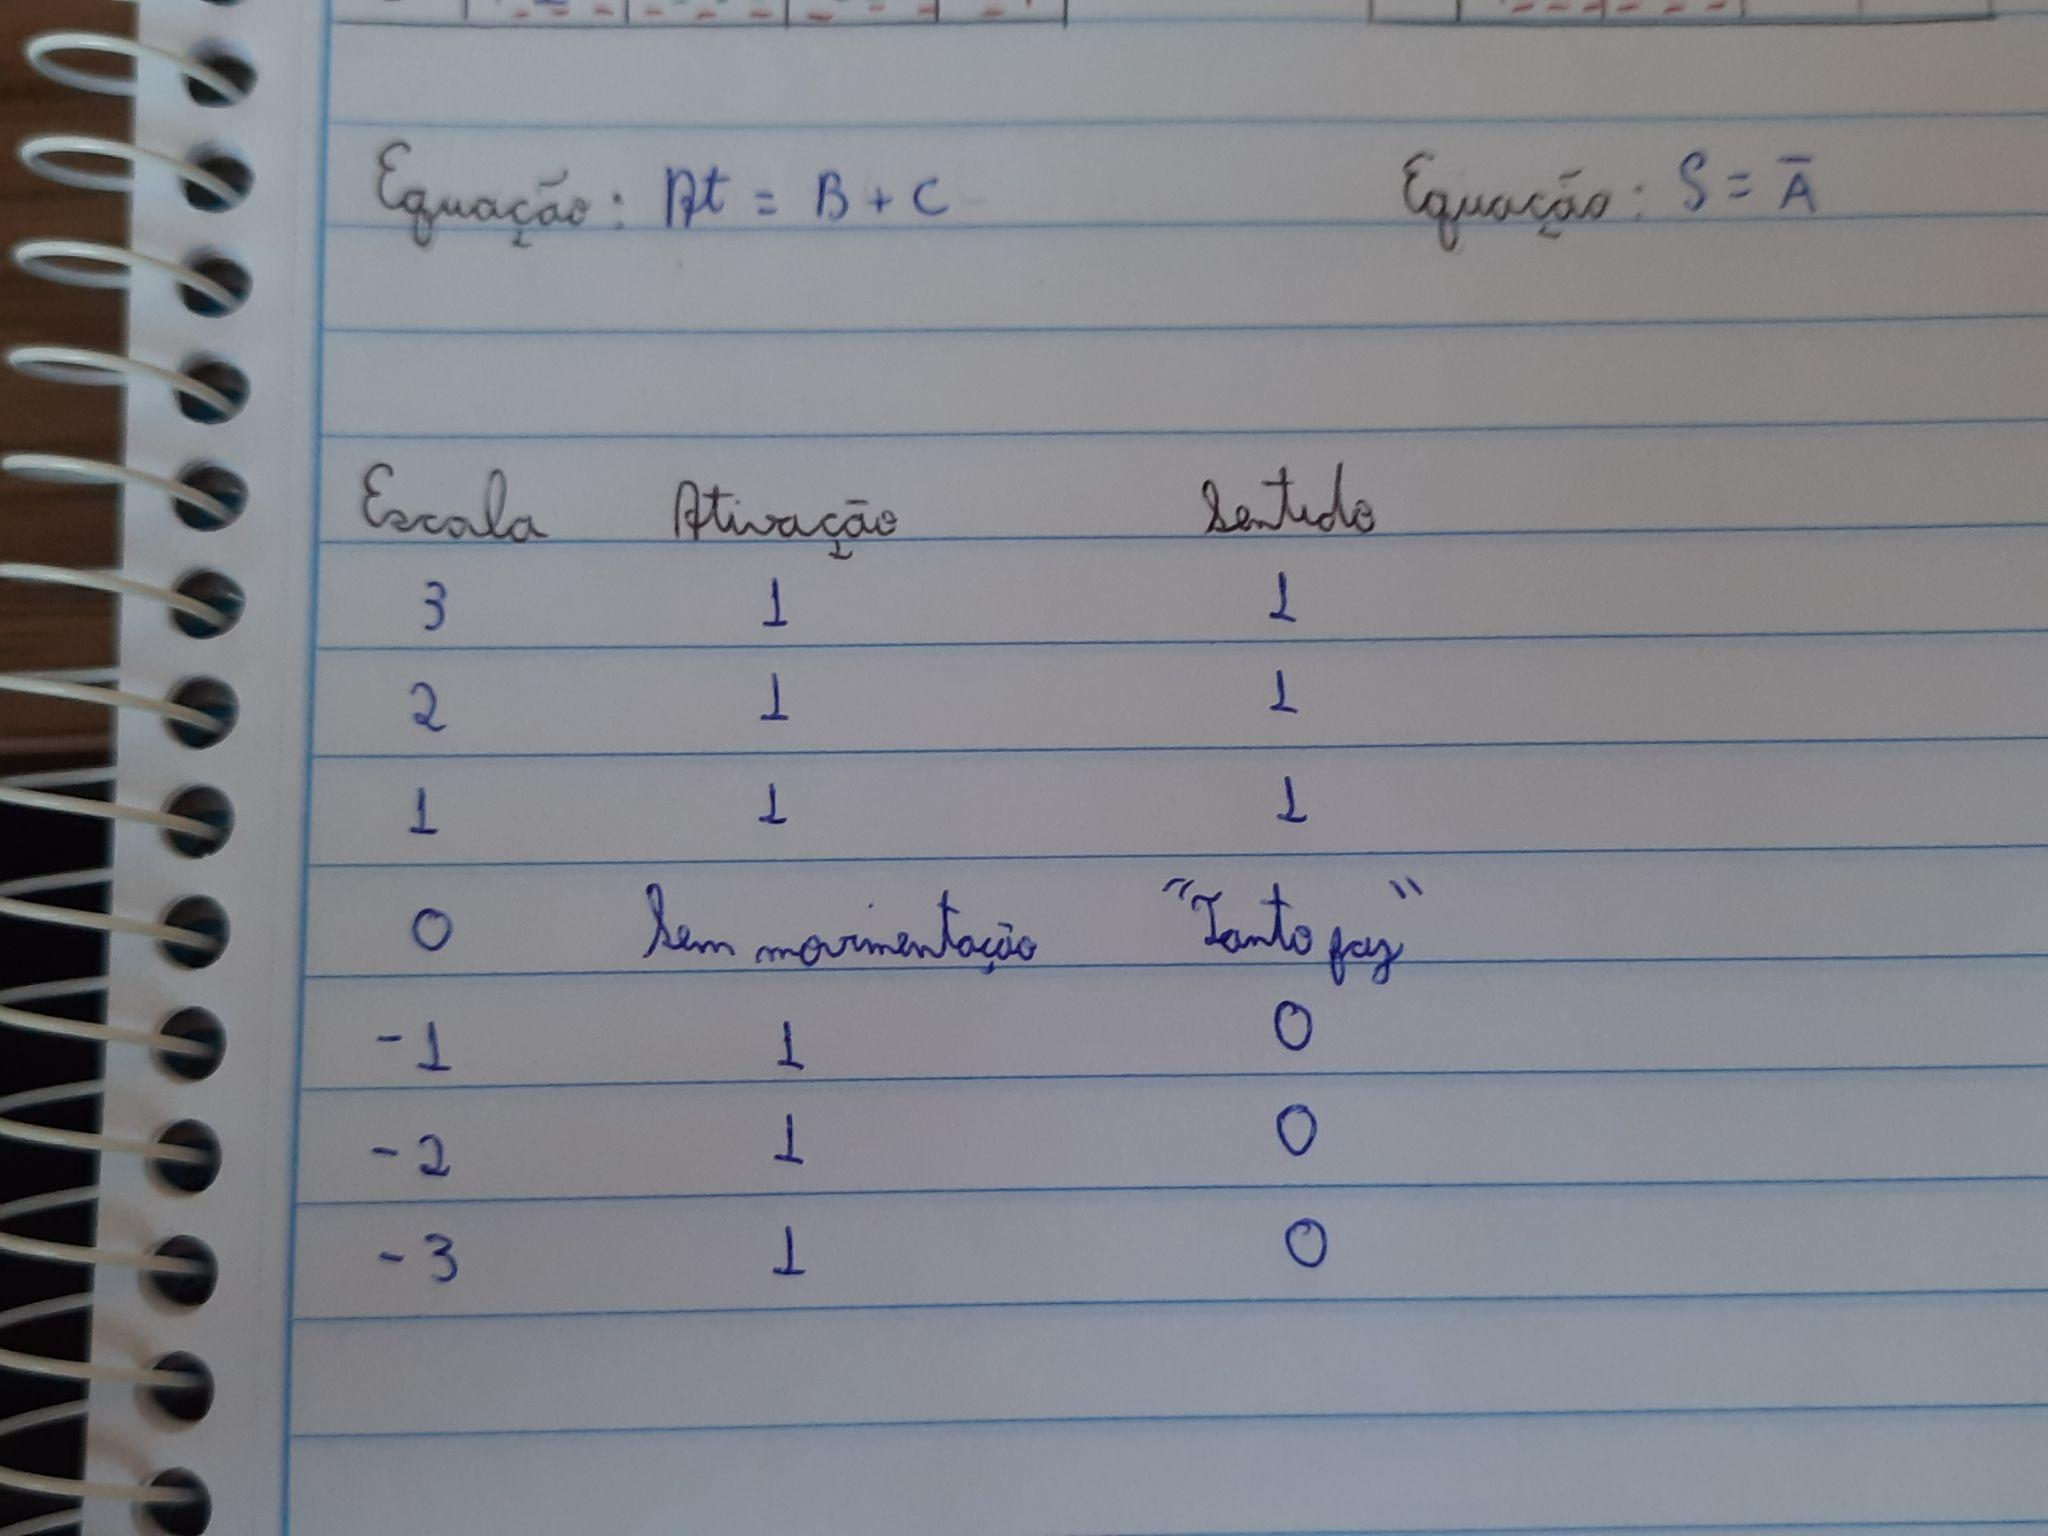 Equação: At = B + C Equação: S = A̅
Escala Ativação Sentido
3 1 1
2 1 1
1 1 1
0 Sem movimentação "Tanto faz"
-1 1 0
-2 1 0
-3 1 0